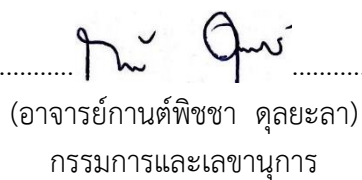 (อาจารย์กานต์พิชชา ดุลยะลา)
กรรมการและเลขานุการ